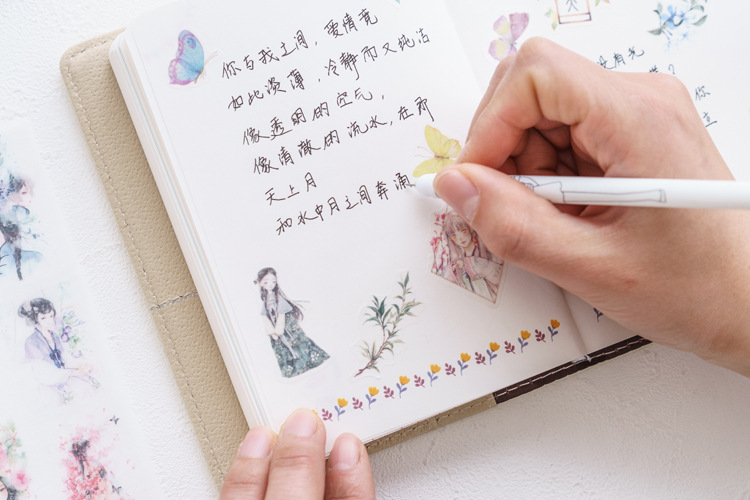 你与我之间，爱情竟
如此淡薄，冷静而又纯洁
像透明的空气，
像清澈的流水，在那
天上月
和水中月之间奔涌
没有
？
你